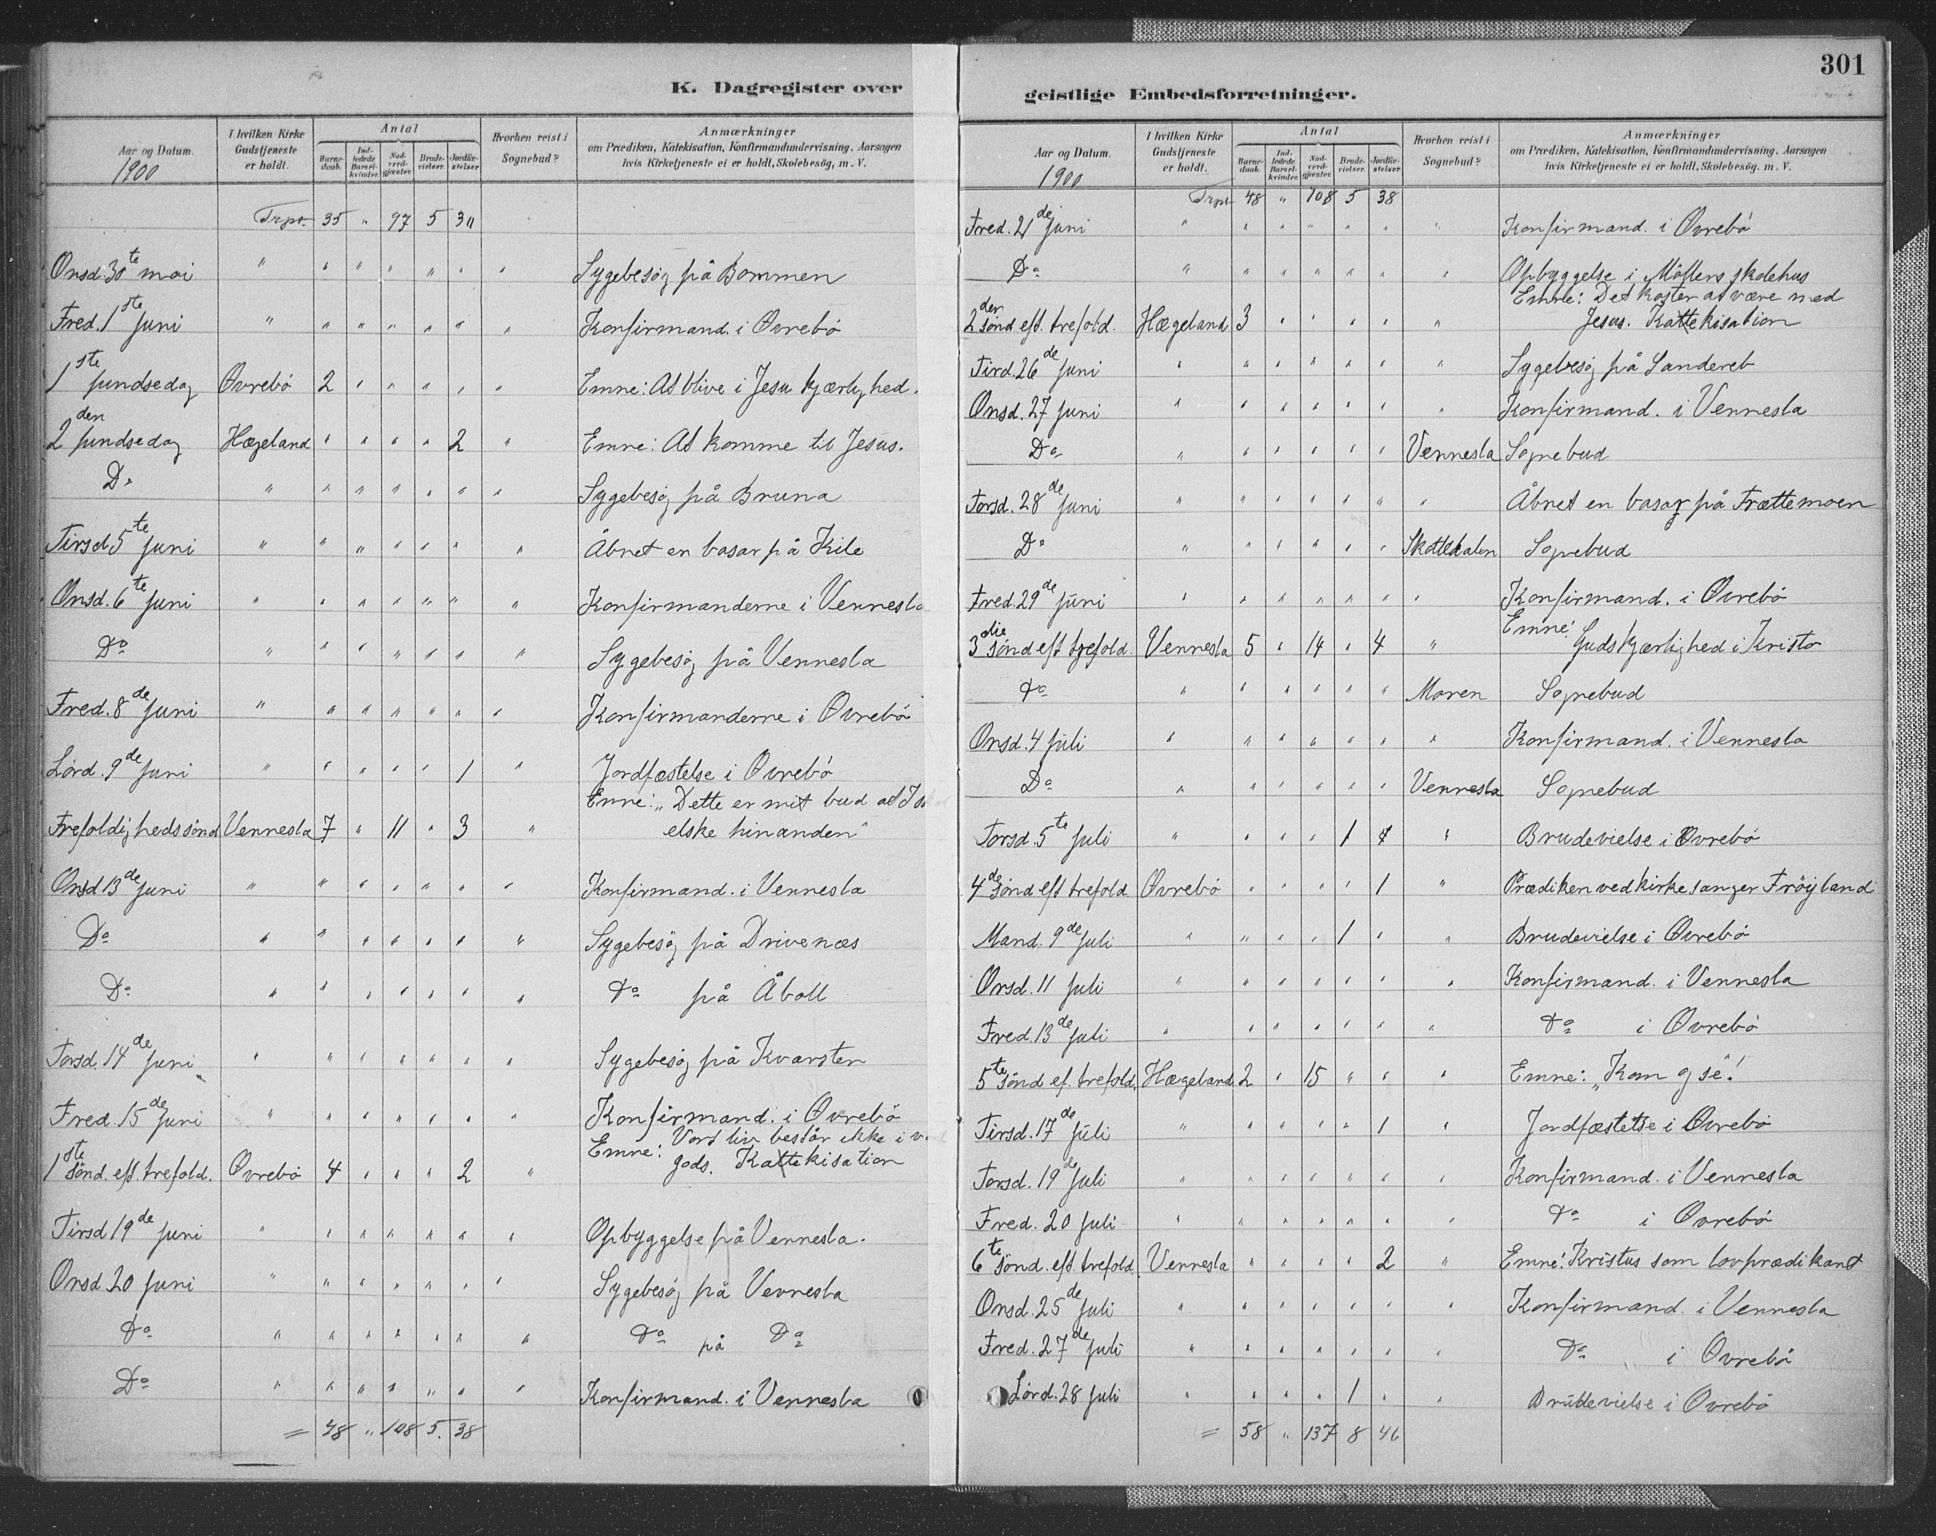 K. Dagregister over
Aar og Datum.
1900
I hvilken Kirke Gudstjeneste er holdt.
Antal
Barnedaab.
Indledede Barselkvinder.
Nadverdgjæster.
Brudevielser.
Jordfæstelser
Hvorhen reist i Sognebud?
Anmærkninger
om Prædiken, Katekisation, Konfirmandundervisning. Aarsagen
hvis Kirketjeneste ei er holdt, Skolebesög, m. V.
Trpt. 35 " 97 5 30
Onsd. 30te mai " " " " " " " Sygebesög på Bommen
Fred. 1ste Juni " " " " " " " Konfirmand. i Øvrebö
1ste pindsedag Øvrebö 2 " " " " " Emne: At blive i Jesu kjærlighed.
2den pindsedag Hægeland " " " " 2 " Emne: At komme til Jesus.
Do " " " " " " " Sygebesög på Bruna
Tirsd. 5te Juni " " " " " " " Åbnet en basar på Kile
Onsd. 6te Juni " " " " " " " Konfirmanderne i Vennesla
Do " " " " " " " Sygebesög på Vennesla
Fred. 8de Juni " " " " " " " Konfirmanderne i Øvrebö
Lörd. 9de Juni " " " " " 1 " Jordfæstelse i Øvrebö
Emne: "Dette er mit bud at I
Trefoldighedssönd Vennesla 7 " 11 " 3 " elske hinanden"
Onsd 13de Juni " " " " " " " Konfirmand. i Vennesla
Do " " " " " " " Sygebesög på Drivenæs
Do " " " " " " " Do på Åboll
Torsd. 14de Juni " " " " " " " Sygebesög på Kvarsten
Fred. 15de Juni " " " " " " " Konfirmand. i Øvrebö
Emne: Vort liv består ikke i
1ste sönd. eft. trefold. Øvrebö 4 " " " 2 " gods. Kattekisation
Tirsd 19de Juni " " " " " " " Opbyggelse på Vennesla.
Onsd 20 Juni " " " " " " " Sygebesög på Vennesla
Do " " " " " " " Do på Do
Do " " " " " " " Konfirmand. i Vennesla
= 48 " 108 5. 38
301
geistlige Embedsforretninger.
Aar og Datum.
1900
I hvilken Kirke Gudstjeneste er holdt.
Antal
Barnedaab.
Indledede Barselkvinder.
Nadverdgjæster.
Brudevielser.
Jordfæstelser
Hvorhen reist i Sognebud?
Anmærkninger
om Prædiken, Katekisation, Konfirmandundervisning. Aarsagen
hvis Kirketjeneste ei er holdt, Skolebesög, m. V.
Trpt 48 " 108 5 38
Fred. 21de Juni " " " " " " " Konfirmand. i Øvrebö
Do " " " " " " " Opbyggelse i Möllers skolehus
Emne: Det koster at være med
2den sönd eft. trefold. Hægeland 3 " " " " " Jesus. Kattekisation
Tird. 26de Juni " " " " " " " Sygebesög på
Onsd. 27 Juni " " " " " " " Konfirmand. i Vennesla
Do " " " " " " Vennesla Sognebud
Torsd. 28de Juni " " " " " " " Åbnet en basar på Frættemoen
Do " " " " " " Sognebud
Fred. 29de Juni " " " " " " " Konfirmand. i Øvrebö
Emne:
3die sönd eft trefold. Vennesla 5 " 14 " 4 " Guds kjærlighed i Kristo
Do " " " " " " Moren Sognebud
Onsd. 4 Juli " " " " " " " Konfirmand. i Vennesla
Do " " " " " " Vennesla Sognebud
Torsd. 5te Juli " " " " 1 " Brudevielse i Øvrebö
4de sönd eft trefold. Øvrebö " " " " 1 " Prædiken ved kirkesanger Fröyland
Mand. 9de Juli " " " " 1 " " Brudevielse i Øvrebö
Onsd. 11 Juli " " " " " " " Konfirmand. i Vennesla
Fred. 13de Juli " " " " " " " Do i Øvrebö
5te sönd ef. trefold. Hægeland 2 " 15 " " " Emne: "Kom og se!"
Tirsd. 17de Juli " " " " " 1 " Jordfæstelse i Øvrebö
Torsd. 19de Juli " " " " " " " Konfirmand. i Vennesla
Fred. 20 Juli " " " " " " " Do i Øvrebö
6te sönd. eft. trefold. Vennesla " " " " 2 " Emne: Kristus som lovprædikant
Onsd. 25de Juli " " " " " " " Konfirmand. i Vennesla
Fred. 27de Juli " " " " " " " Do i Øvrebö
Lörd. 28 Juli " " " " 1 " " Brudevielse i Øvrebö
= 58 " 137 8 46